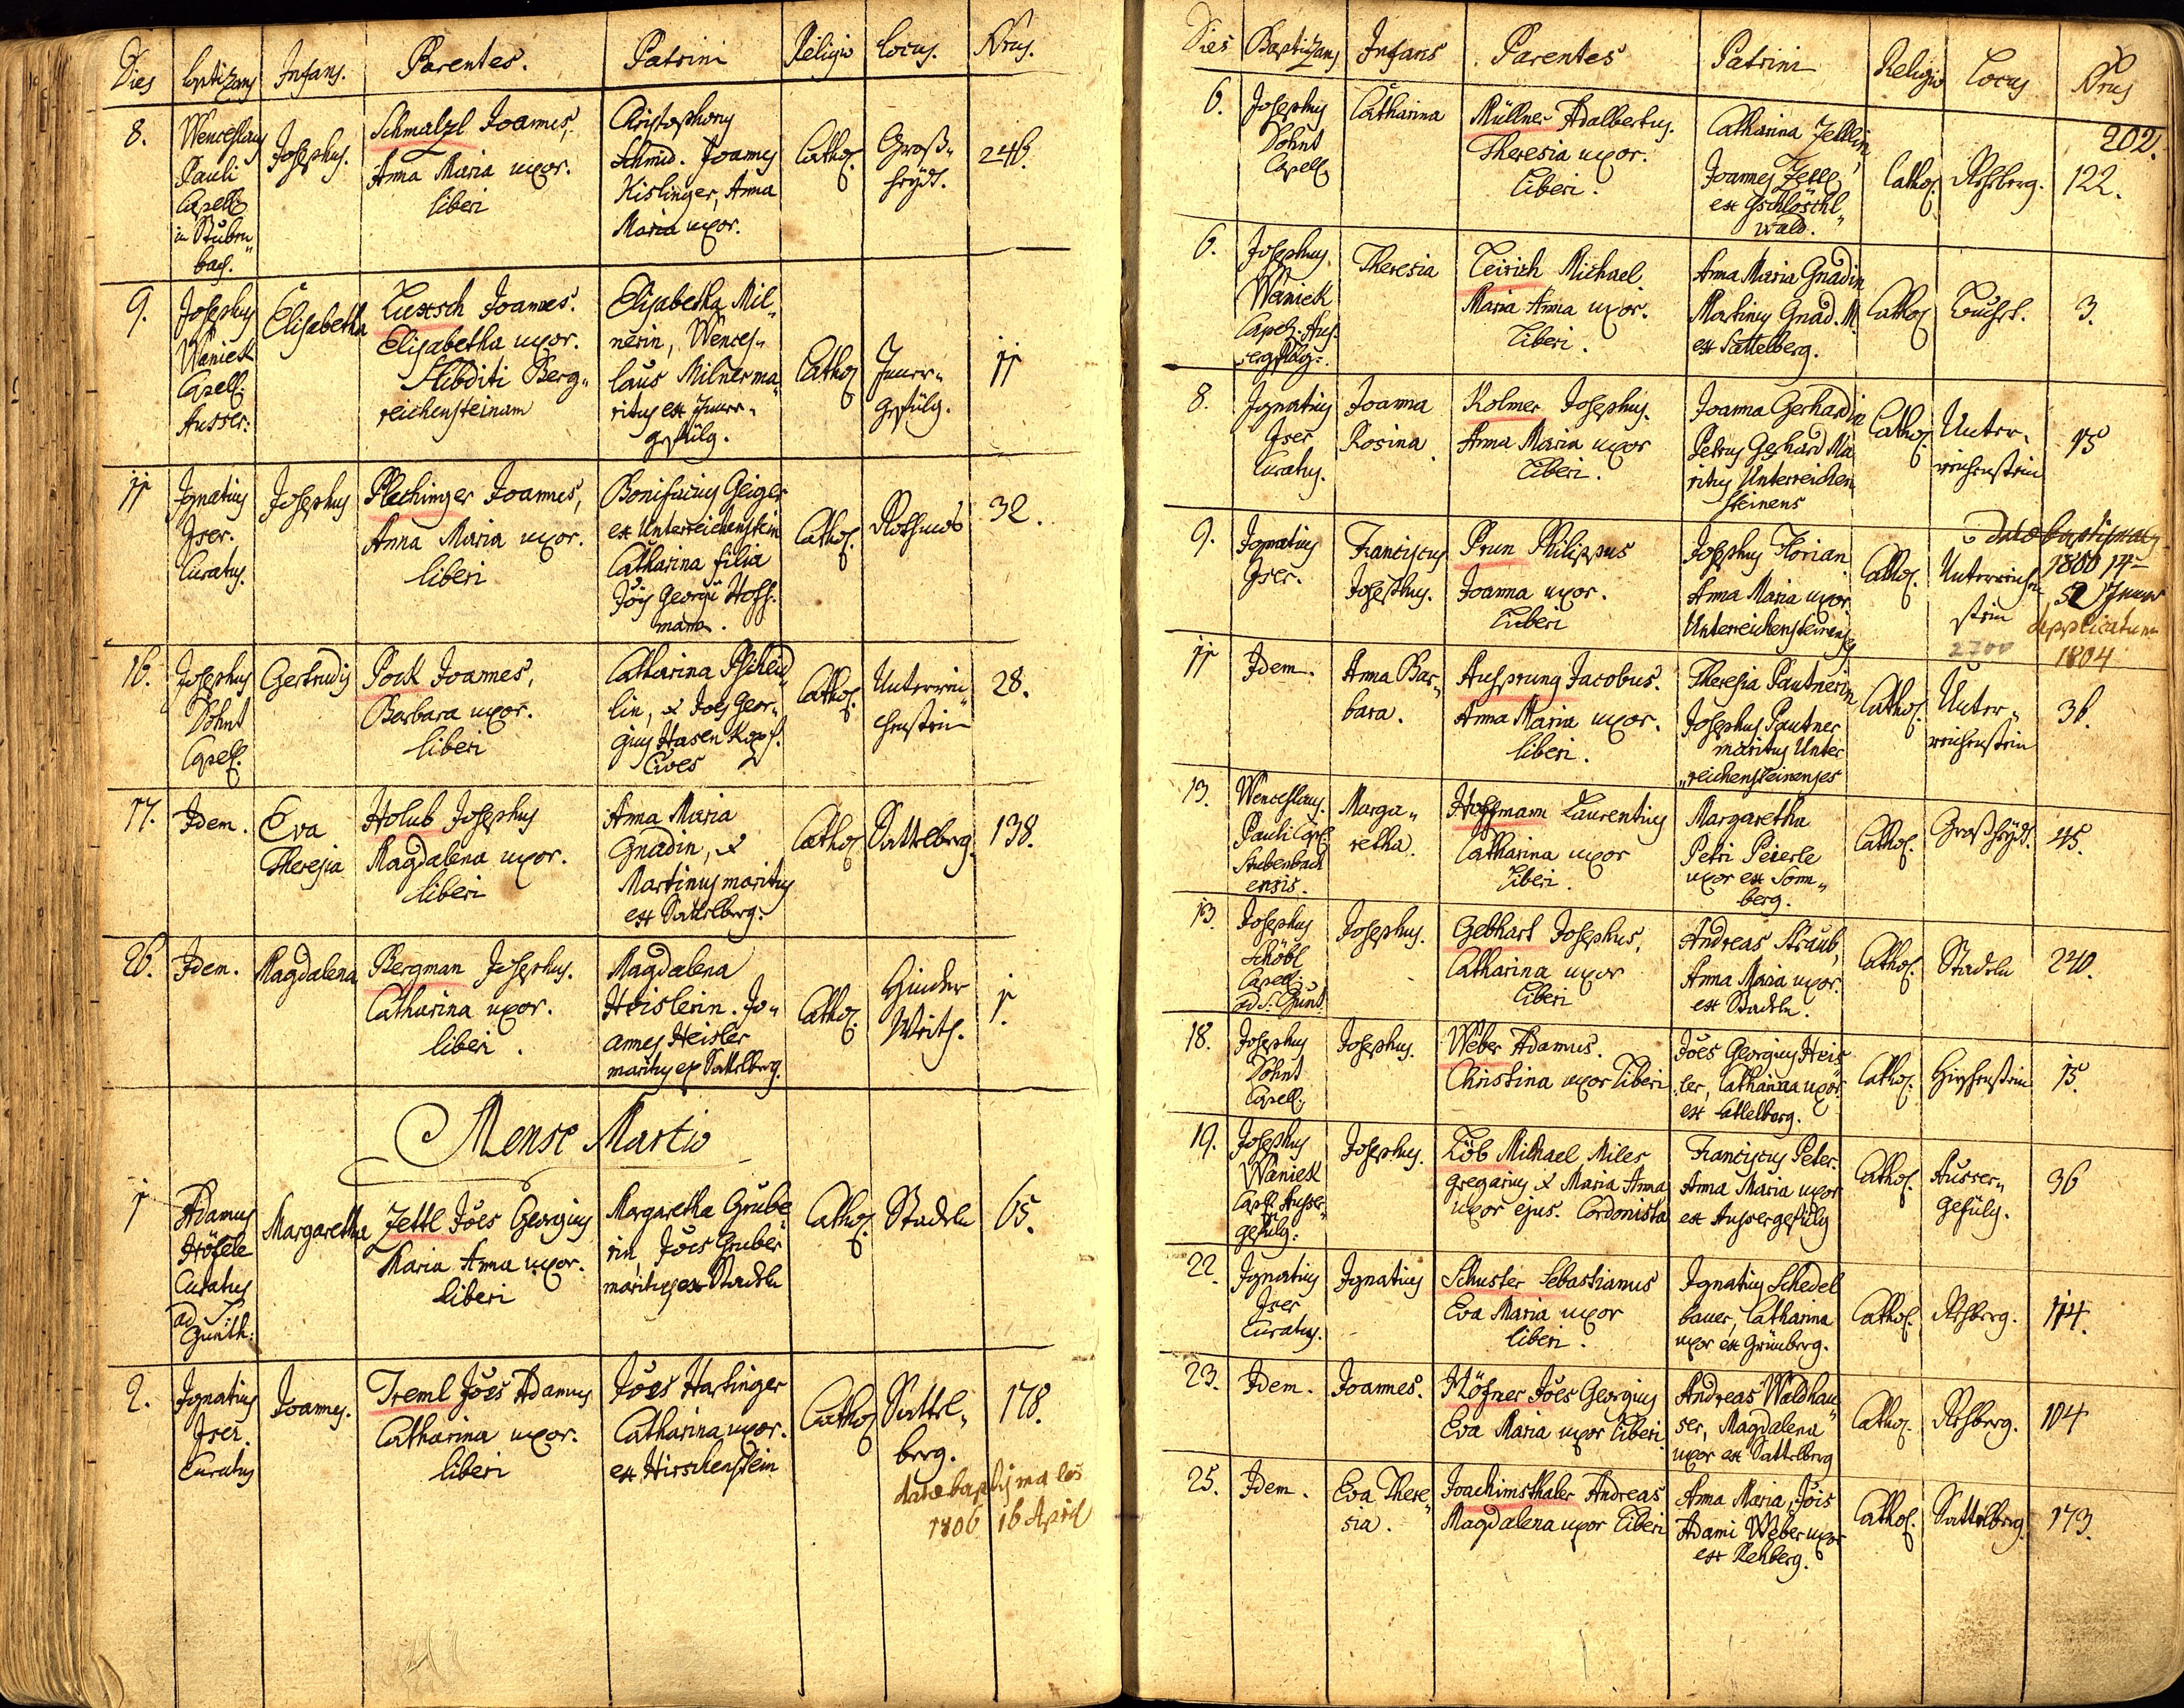 Dies Baptizans Infans. Parentes. Patrini Religio Locus. Nrus.
8. Wenceslaus Pauli Capell. in Stuben„ bach. Josephus. Schmalzl Joannes, Anna Maria uxor. liberi Christophorus Schmid. Joannes Kislinger, Anna Maria uxor. Cathol. Groß„ 246.
9. Josephus Waniek Capell. Ausser: Elisabetha Luxsch Joannes. Elisabetha uxor. Subditi Berg„ reichensteinam Elisabetha Mil„ nerin, Wences„ laus Milner ma„ ritus ex Inner„ gefilg. Cathol. Inner„ gefülg. 11
11 Ignatius Jser. Curatus. Josephus Plechinger Joannes, Anna Maria uxor. liberi Bonifacius Geiger ex Unterreichenstein Catharina filia Jois Georgii Hoff„ mann. Cathol. 32.
16. Josephus Dohnt Capell. Gertrudis Pock Joannes, Barbara uxor. liberi Catharina Pscheid„ lin, & Joes Geor„ gius Hasenkopf. Cives Cathol. Unterrei„ chenstein 28.
17. Idem. Eva Theresia Holub Josephus Magdalena uxor. liberi Anna Maria Gnadin, & Martinus maritus ex Sattelberg. Cathol. Sattelberg. 138.
26. Idem. Magdalena Bergman Josephus. Catharina uxor. liberi. Magdalena Heislerin. Jo„ annes Heisler maritus ex Sattelberg. Cathol. Hinder 1.
Mense Martio
1 Adamus Höfele Curatus ad S. Gunth: Margaretha Zettl Joes Georgius Maria Anna uxor. liberi Margaretha Grube„ rin, Joes Gruber maritus ex Stadeln Cathol. Stadeln 65.
2. Ignatius Jser. Curatus Joannes. Treml Joes Adamus Catharina uxor. liberi Joes Hartinger Catharina uxor. ex Hirschenstein Cathol. Sattel„ berg. 178.
datae baptismales
1806 16 April
Dies Baptizans Infans Parentes Patrini Religio Locus Nrus
202.
6. Josephus Dohnt Capell. Catharina Müllner Adalbertus. Theresia uxor. Liberi. Catharina Zettlin, Joannes Zettl, ex Gschlössl„ wald. Cathol. Rehberg. 122.
6. Josephus. Waniek Capel. Aus„ sergfilg: Theresia Leirich Michael. Maria Anna uxor. Liberi. Anna Maria Gnadin Martinus Gnad. M. ex Sattelberg. Cathol. 3.
8. Ignatius Jser Curatus. Joanna Rosina. Kolmer Josephus. Anna Maria uxor Liberi. Joanna Gerhardin Petrus Gerhard Ma„ ritus Unterreichen„ steinens Cathol. Unter„ reichenstein 15
9. Ignatius Jser. Franciscus Josephus. Prun Philippus Joanna uxor. Liberi Josephus Florian Anna Maria uxor. Unterreichensteinens. Cathol. Unterreichen„ stein 52
datae baptismales
1800 14
Applicatum
1804
2700
11 Idem. Anna Bar„ bara. Aufsprung Jacobus. Anna Maria uxor. liberi. Theresia Pautnerin, Josephus Pautner maritus Unter„ reichensteinenses Cathol. Unter„ reichenstein 36.
13. Wenceslaus. Pauli Capel. Stubenbach ensis. Marga„ retha. Hoffmann Laurentius Catharina uxor Liberi. Margaretha Petri Peierle uxor ex Sonn„ berg. Cathol. 45.
13. Josephus Schöbl Capell. ad S. Gunt. Josephus. Gebhart Josephus, Catharina uxor Liberi Andreas Straub, Anna Maria uxor. ex Stadeln. Cathol. Stadeln 240.
18. Josephus Dohnt Capell. Josephus. Weber Adamus. Christina uxor Liberi Joes Georgius Heis„ ler, Catharina uxor ex Sattelberg. Cathol. Hirschenstein 15.
19. Josephus Waniek Capl. Ausser„ gefülg: Josephus. Löb Michael Miles gregarius & Maria Anna uxor ejus. Cordonista Franciscus Peter. Anna Maria uxor ex Aussergefülg Cathol. Ausser„ gefülg. 36
22. Ignatius Jser Curatus. Ignatius Schuster Sebastianus Eva Maria uxor liberi. Ignatius Schedel bauer, Catharina uxor ex Grünberg. Cathol. Rehberg. 114.
23. Idem. Joannes. Höfner Joes Georgius Eva Maria uxor Liberi. Andreas Waldhau„ ser, Magdalena uxor ex Sattelberg Cathol. Rehberg. 104
25. Idem. Eva There„ sia. Joachimsthaler Andreas Magdalena uxor Liberi Anna Maria, Jois Adami Weber uxor ex Rehberg. Cathol. Sattelberg. 173.